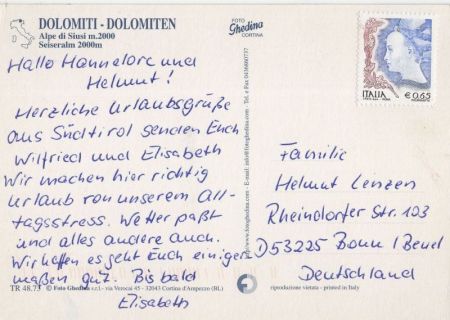 DOLOMITI - DOLOMITEN
Alpe di Siusi m.2000
Seiseralm 2000m
FOTO
Ghedina
CORTINA
Hallo Hannelore und
Helmut!
Herzliche Urlaubsgrüße
aus Südtirol senden Euch
Wilfried und Elisabeth
Wir machen hier richtig
Urlaub von unserem All-
tagsstress. Wetter paßt
und alles andere auch.
Wir hoffen es geht Euch einiger-
maßen gut. Bis bald
Elisabeth
ITALIA
€ 0,65
Familie
Helmut Lenzen
Rheindorfer Str. 103
D53225 Bonn/Beuel
Deutschland
TR 48.73
© Foto Ghedina s.r.l. - via Verocai 45 - 32043 Cortina d'Ampezzo (BL)
riproduzione vietata - printed in Italy
www.fotoghedina.com - E-mail: info@fotoghedina.com - Tel. e Fax 0436860737